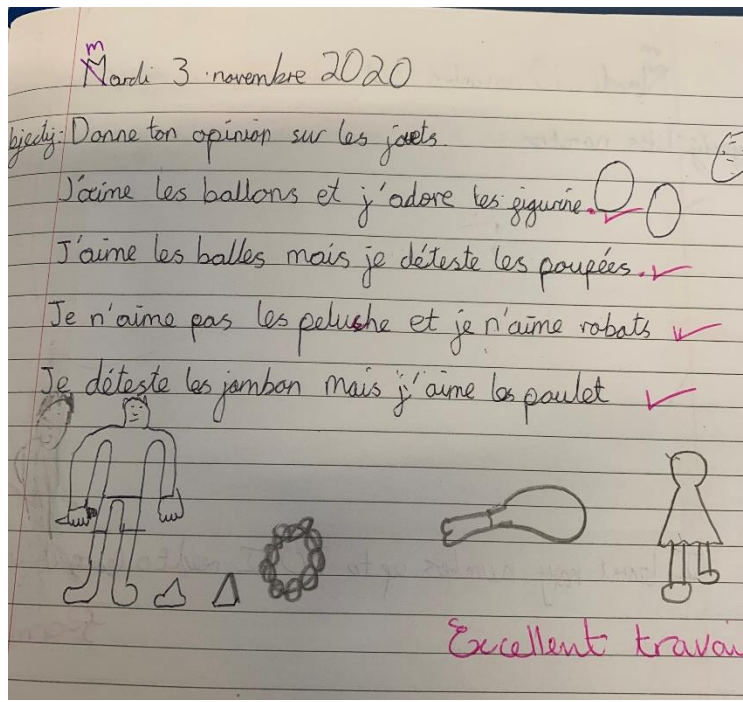 m
Mardi 3 novembre 2020
bjectij: Donne ton opinion sur les jouets.
J'aime les ballons et j'adore les figurine.
J'aime les balles mais je déteste les poupées.
Je n'aime pas les peluche et je n'aime robots
Je déteste les jambon mais j'aime les poulet
Excellent travai